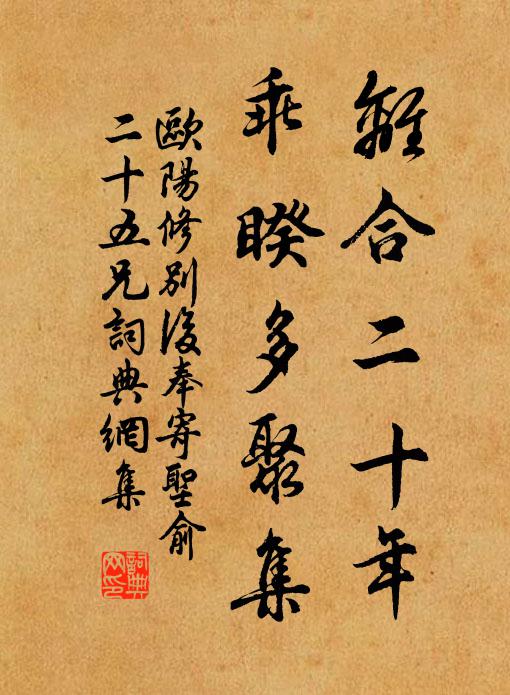 離合二十年
乖暌多聚集
歐陽修別後奉寄聖俞
二十五兄詞典網集
詞典
网印